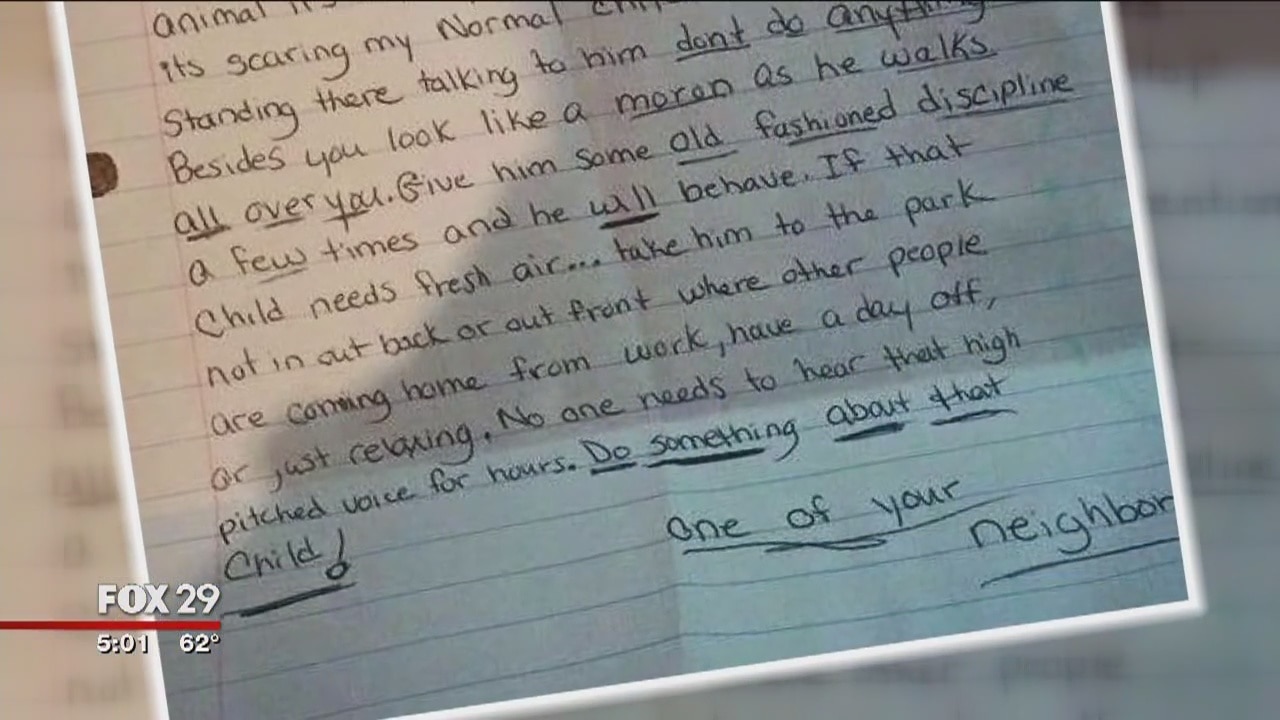 animal
its scaring my Normal
Standing there talking to him dont do
Besides you look like a moron as he walks
all over you. Give him some old fashioned discipline
a few times and he will behave. If that
Child needs fresh air... take him to the park
not in out back or out front where other people
are coming home from work, have a day off,
or just relaxing. No one needs to hear that high
pitched voice for hours. Do something about that
Child!
one of your
neighbor
FOX 29
5:01 62°